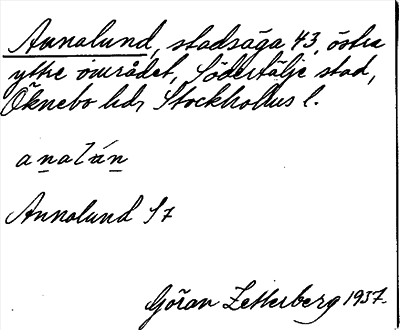 Annalund, stadsäga 43, östra
yttre området, Södertälje stad,
Öknebo hd, Stockholms l.
analán
Annalund S7
Göran Zetterberg 1937.